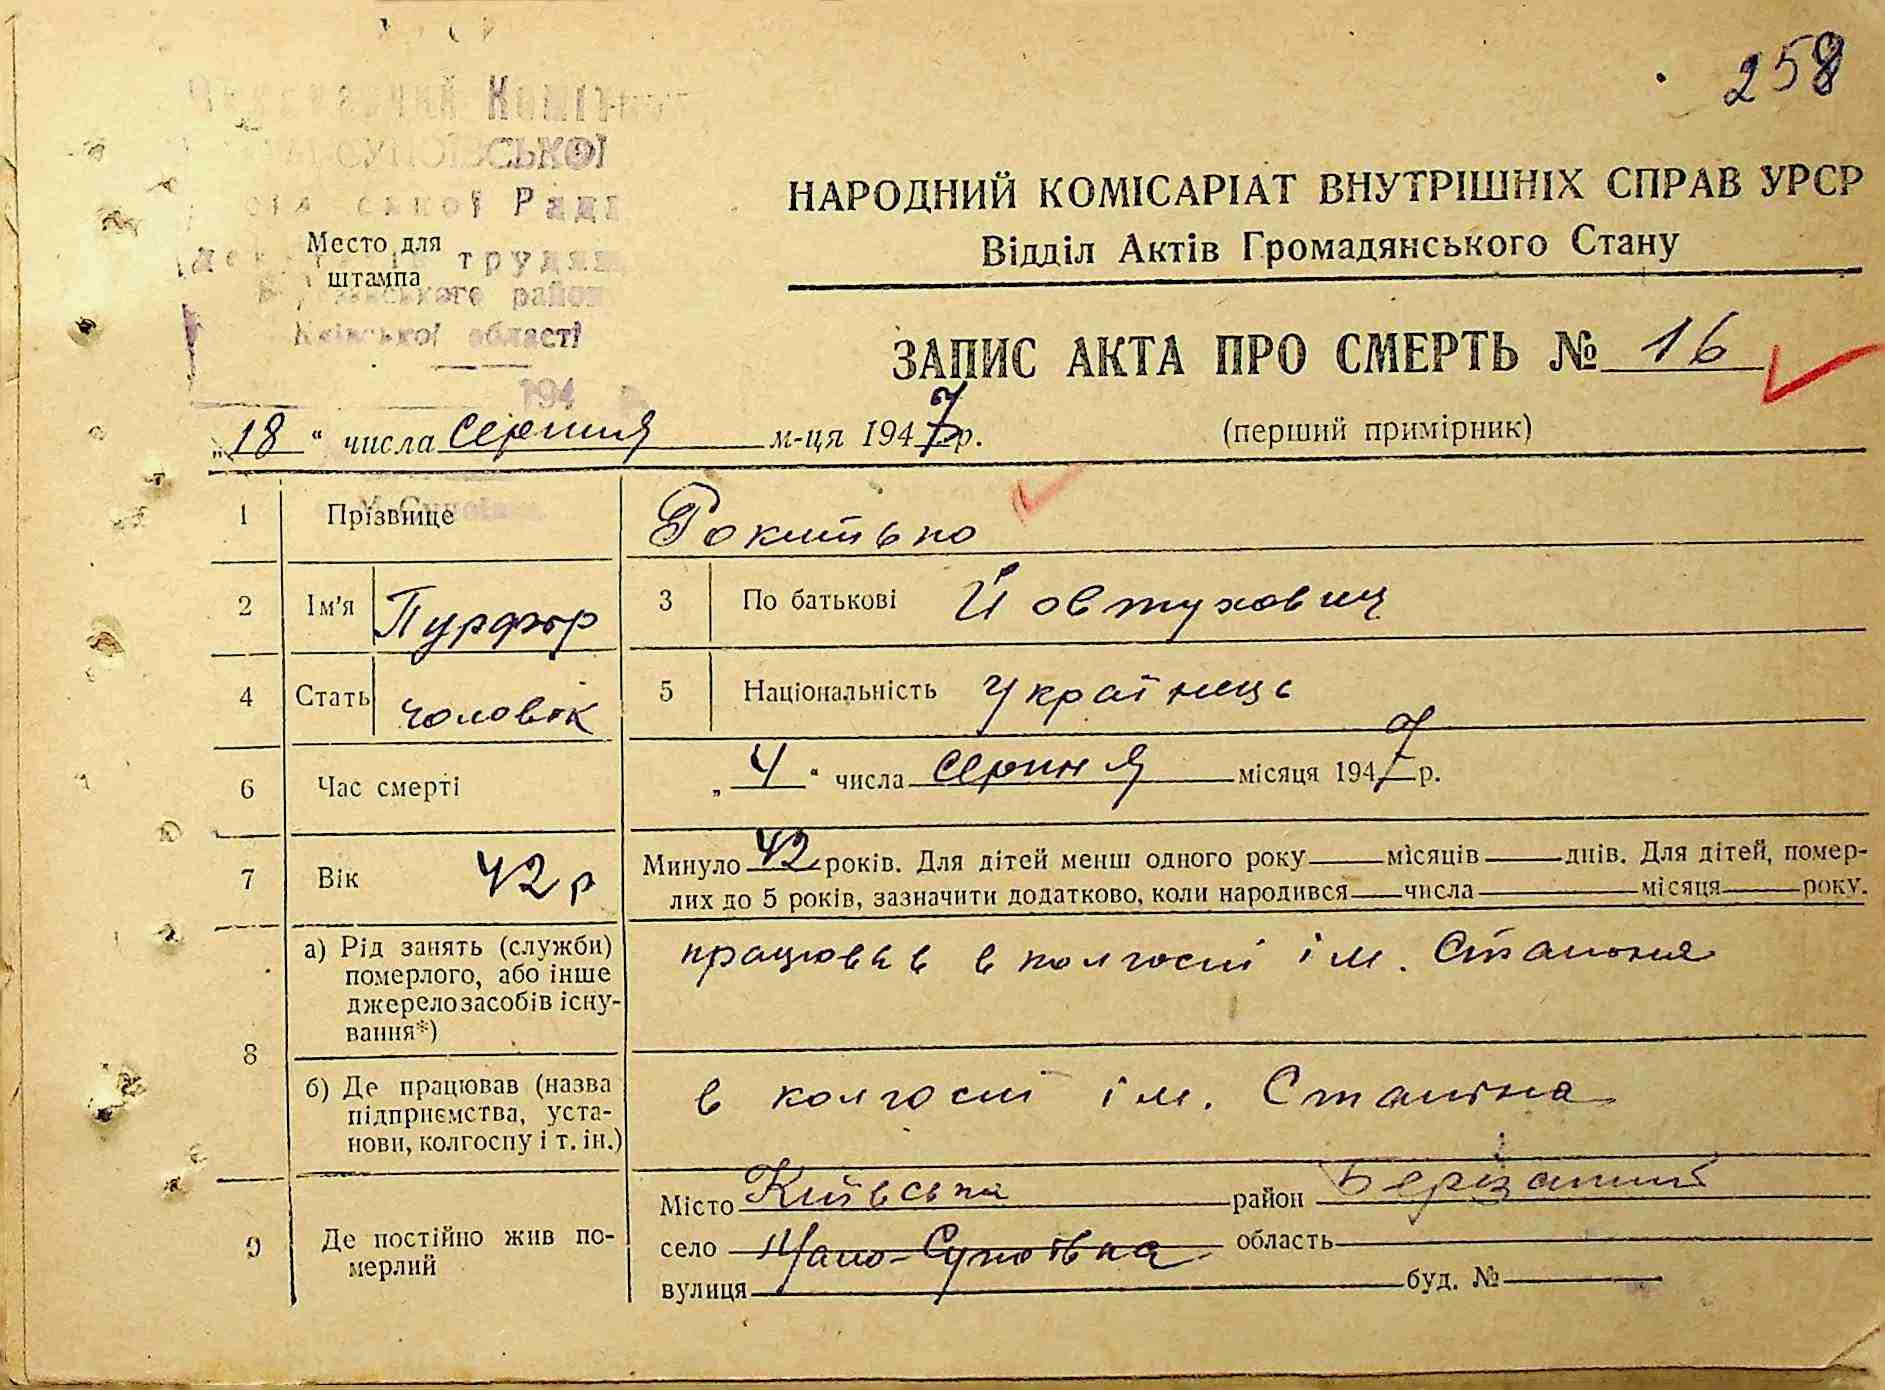 258
Виконавчий Комітет
СУПОЇВСЬКОЇ
ської Ради
трудящ
Место для
штампа
ського району
Київської області
194
НАРОДНИЙ КОМІСАРІАТ ВНУТРІШНІХ СПРАВ УРСР
Відділ Актів Громадянського Стану
ЗАПИС АКТА ПРО СМЕРТЬ № 16
„18“ числа серпня м-ця 1947 р.
(перший примірник)
1 Прізвище Рокитько
2 Ім'я Пурфир 3 По батькові Йовтухович
4 Стать чоловік 5 Національність Українець
6 Час смерті „4“ числа серпня місяця 1947 р.
7 Вік 42 р Минуло 42 років. Для дітей менш одного року місяців днів. Для дітей, помер-
лих до 5 років, зазначити додатково, коли народився числа місяця року.
8 а) Рід занять (служби)
померлого, або інше
джерело засобів існу-
вання*)
працював в колгоспі ім. Сталіна
б) Де працював (назва
підприємства, уста-
нови, колгоспу і т. ін.)
в колгоспі ім. Сталіна
9 Де постійно жив по-
мерлий
Місто Київська район Березанський
село Мало-Супоївка область
вулиця буд. №